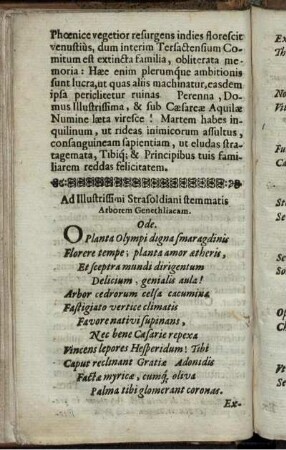 Phœnice vegetior resurgens indies florescit
venustiùs, dum interim Tersactensium Co-
mitum est extincta familia, obliterata me-
moria: Hæc enim plerumque ambitionis
sunt lucra, ut quas aliis machinatur, easdem
ipsa periclitetur ruinas. Perenna, Do-
mus Illustrissima, & sub Cæsareæ Aquilæ
Numine læta viresce! Martem habes in-
quilinum, ut rideas inimicorum assultus,
consanguineam sapientiam, ut eludas stra-
tagemata, Tibiq; & Principibus tuis fami-
liarem reddas felicitatem.
Ad Illustrissimi Strasoldiani stemmatis
Arborem Genethliacam.
Ode.
O Planta Olympi digna smaragdinis
Florere tempe; planta amor ætheris,
Et sceptra mundi dirigentum
Delicium, genialis aula!
Arbor cedrorum celsa cacumina
Fastigiato vertice climatis
Favore nativi supinans,
Nec bene Cæsarie repexa
Vincens lepores Hesperidum! Tibi
Caput reclinant Gratiæ Adonidis
Factæ myricæ, cumq; oliva
Palma tibi glomerant coronas.
Ex-